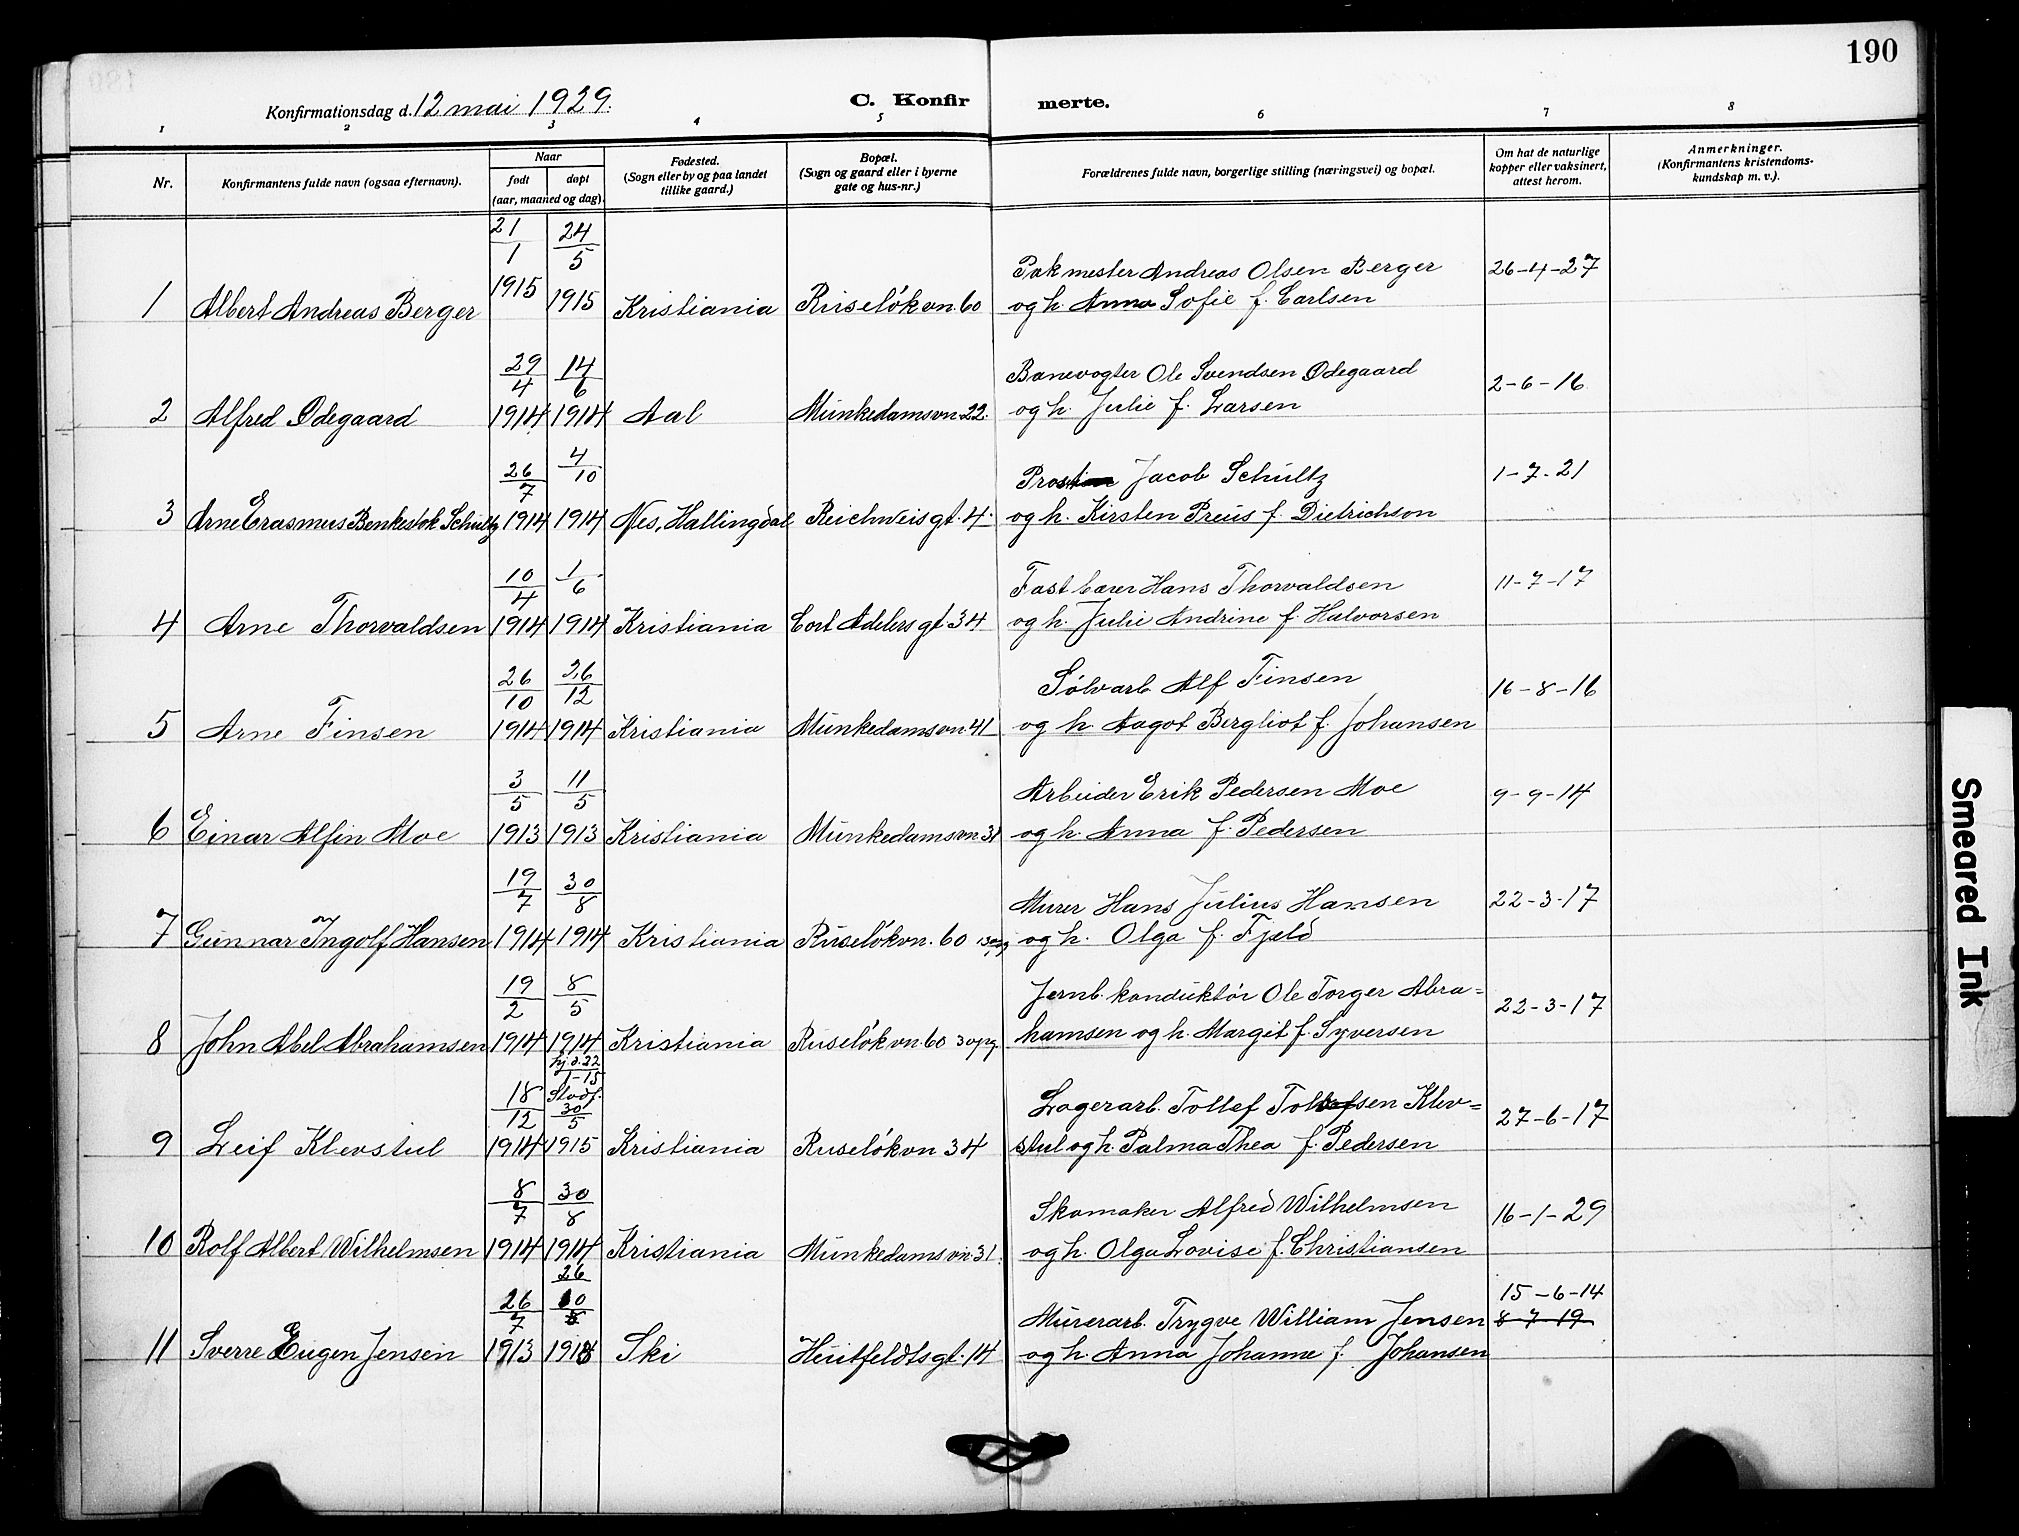 190
Konfirmationsdag d. 12 mai 1929.
C. Konfirmerte.
1 2 3 4 5 6 7 8
Nr.
Konfirmantens fulde navn (ogsaa efternavn).
Naar
født døpt
(aar, maaned og dag).
Fødested.
(Sogn eller by og paa landet
tillike gaard.)
Bopæl.
(Sogn og gaard eller i byerne
gate og hus-nr.)
Forældrenes fulde navn, borgerlige stilling (næringsvei) og bopæl.
Om hat de naturlige
kopper eller vaksinert,
attest herom.
Anmerkninger.
(Konfirmantens kristendoms-
kundskap m. v.).
21/1 24/5
Pakmester Andreas Olsen Berger 26-4-27
1 Albert Andreas Berger 1915 1915 Kristiania Ruseløkvn. 60 og h. Anna Sofie f. Carlsen
29/4 14/6
Banevogter Ole Svendsen Ødegaard 2-6-16
2 Alfred Ødegaard 1914 1914 Aal Munkedamsvn 22. og h. Julie f. Larsen
26/7 4/10
Prost Jacob Schultz 1-7-21
3 Arne Erasmus Benkestok Schultz 1914 1914 Nes, Hallingdal Reichweisgt. 4. og h. Kirsten Preus f. Dietrichson
10/4 1/6
Fast bærer Hans Thorvaldsen 11-7-17
4 Arne Thorvaldsen 1914 1914 Kristiania Cort Adelersgt. 34 og h. Julie Andrine f. Halvorsen
26/10 26/12
Sølvarb. Alf Finsen 16-8-16
5 Arne Finsen 1914 1914 Kristiania Munkedamsvn. 41 og h. Aagot Bergliot f. Johansen
3/5 11/5
Arbeider Erik Pedersen Moe 9-9-14
6 Einar Alfin Moe 1913 1913 Kristiania Munkedamsvn. 31 og h. Anna f. Pedersen
19/7 30/8
Murer Hans Julius Hansen 22-3-17
7 Gunnar Ingolf Hansen 1914 1914 Kristiania Ruseløkvn. 60 og h. Olga f. Fjeld
19/2 8/5
Jernb. konduktør Ole Torger Abra= 22-3-17
8 John Abel Abrahamsen 1914 1914 Kristiania Ruseløkvn 60 3 opg. hamsen og h. Margit f. Syversen
hj. d. 22/1-15
Stadf.
18/12 30/5
Lagerarb. Tollef Tollefsen Klev= 27-6-17
9 Leif Klevstul 1914 1915 Kristiania Ruseløkvn 34 stul og h. Palma Thea f. Pedersen
8/7 30/8
Skomaker Alfred Wilhelmsen 16-1-29
10 Rolf Albert Wilhelmsen 1914 1914 Kristiania Munkedamsvn. 31. og h. Olga Lovise f. Christiansen
26
15-6-14
26/7 10
Murerarb. Trygve William Jensen 8-7-19
11 Sverre Eugen Jensen 1913 1913 Ski Heitfeldtsgt. 14 og h. Anna Johanne f. Johansen
Smeared Ink